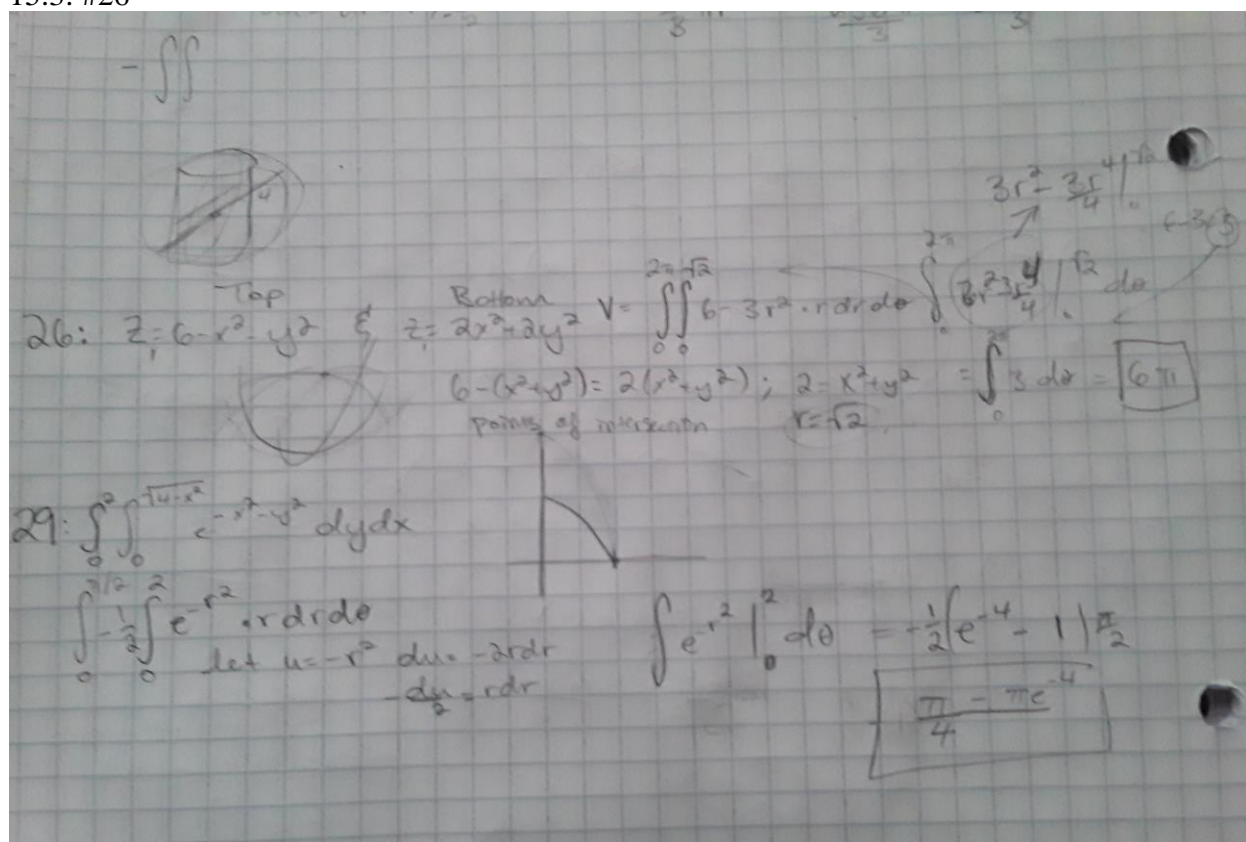 15.3: #26
-∫∫
4
3r² - 3r⁴/4 |₀^√2
26: Top Bottom
z = 6-x²-y² & z = 2x²+2y² V= ∫₀^2π ∫₀^√2 6-3r² · r dr dθ ∫₀^2π 3r² - 3r⁴/4 |₀^√2 dθ
6-(x²+y²) = 2(x²+y²); 2 = x²+y² = ∫₀^2π 3 dθ = 6π
points of intersection r=√2
29: ∫₀² ∫₀^√(4-x²) e^(-x²-y²) dydx
∫₀^(π/2) -1/2 ∫₀² e^(-r²) · r dr dθ ∫ e^(-r²) |₀² dθ = -1/2 (e⁻⁴ - 1) π/2
let u = -r² du = -2rdr
-du/2 = rdr
(π - πe⁻⁴)/4